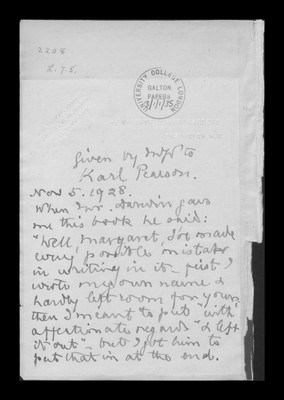 2208
UNIVERSITY COLLEGE LONDON
GALTON
PAPERS
Given by to
Karl Pearson.
Nov 5. 1928.
When Mr. Darwin gave
me this book he said:
"Well Margaret, I've made
every possible mistake
in writing in it - first I
wrote my own name &
hardly left room for yours
then I meant to put "with
affectionate regards" & left
it out" - but I got him to
put that in at the end.